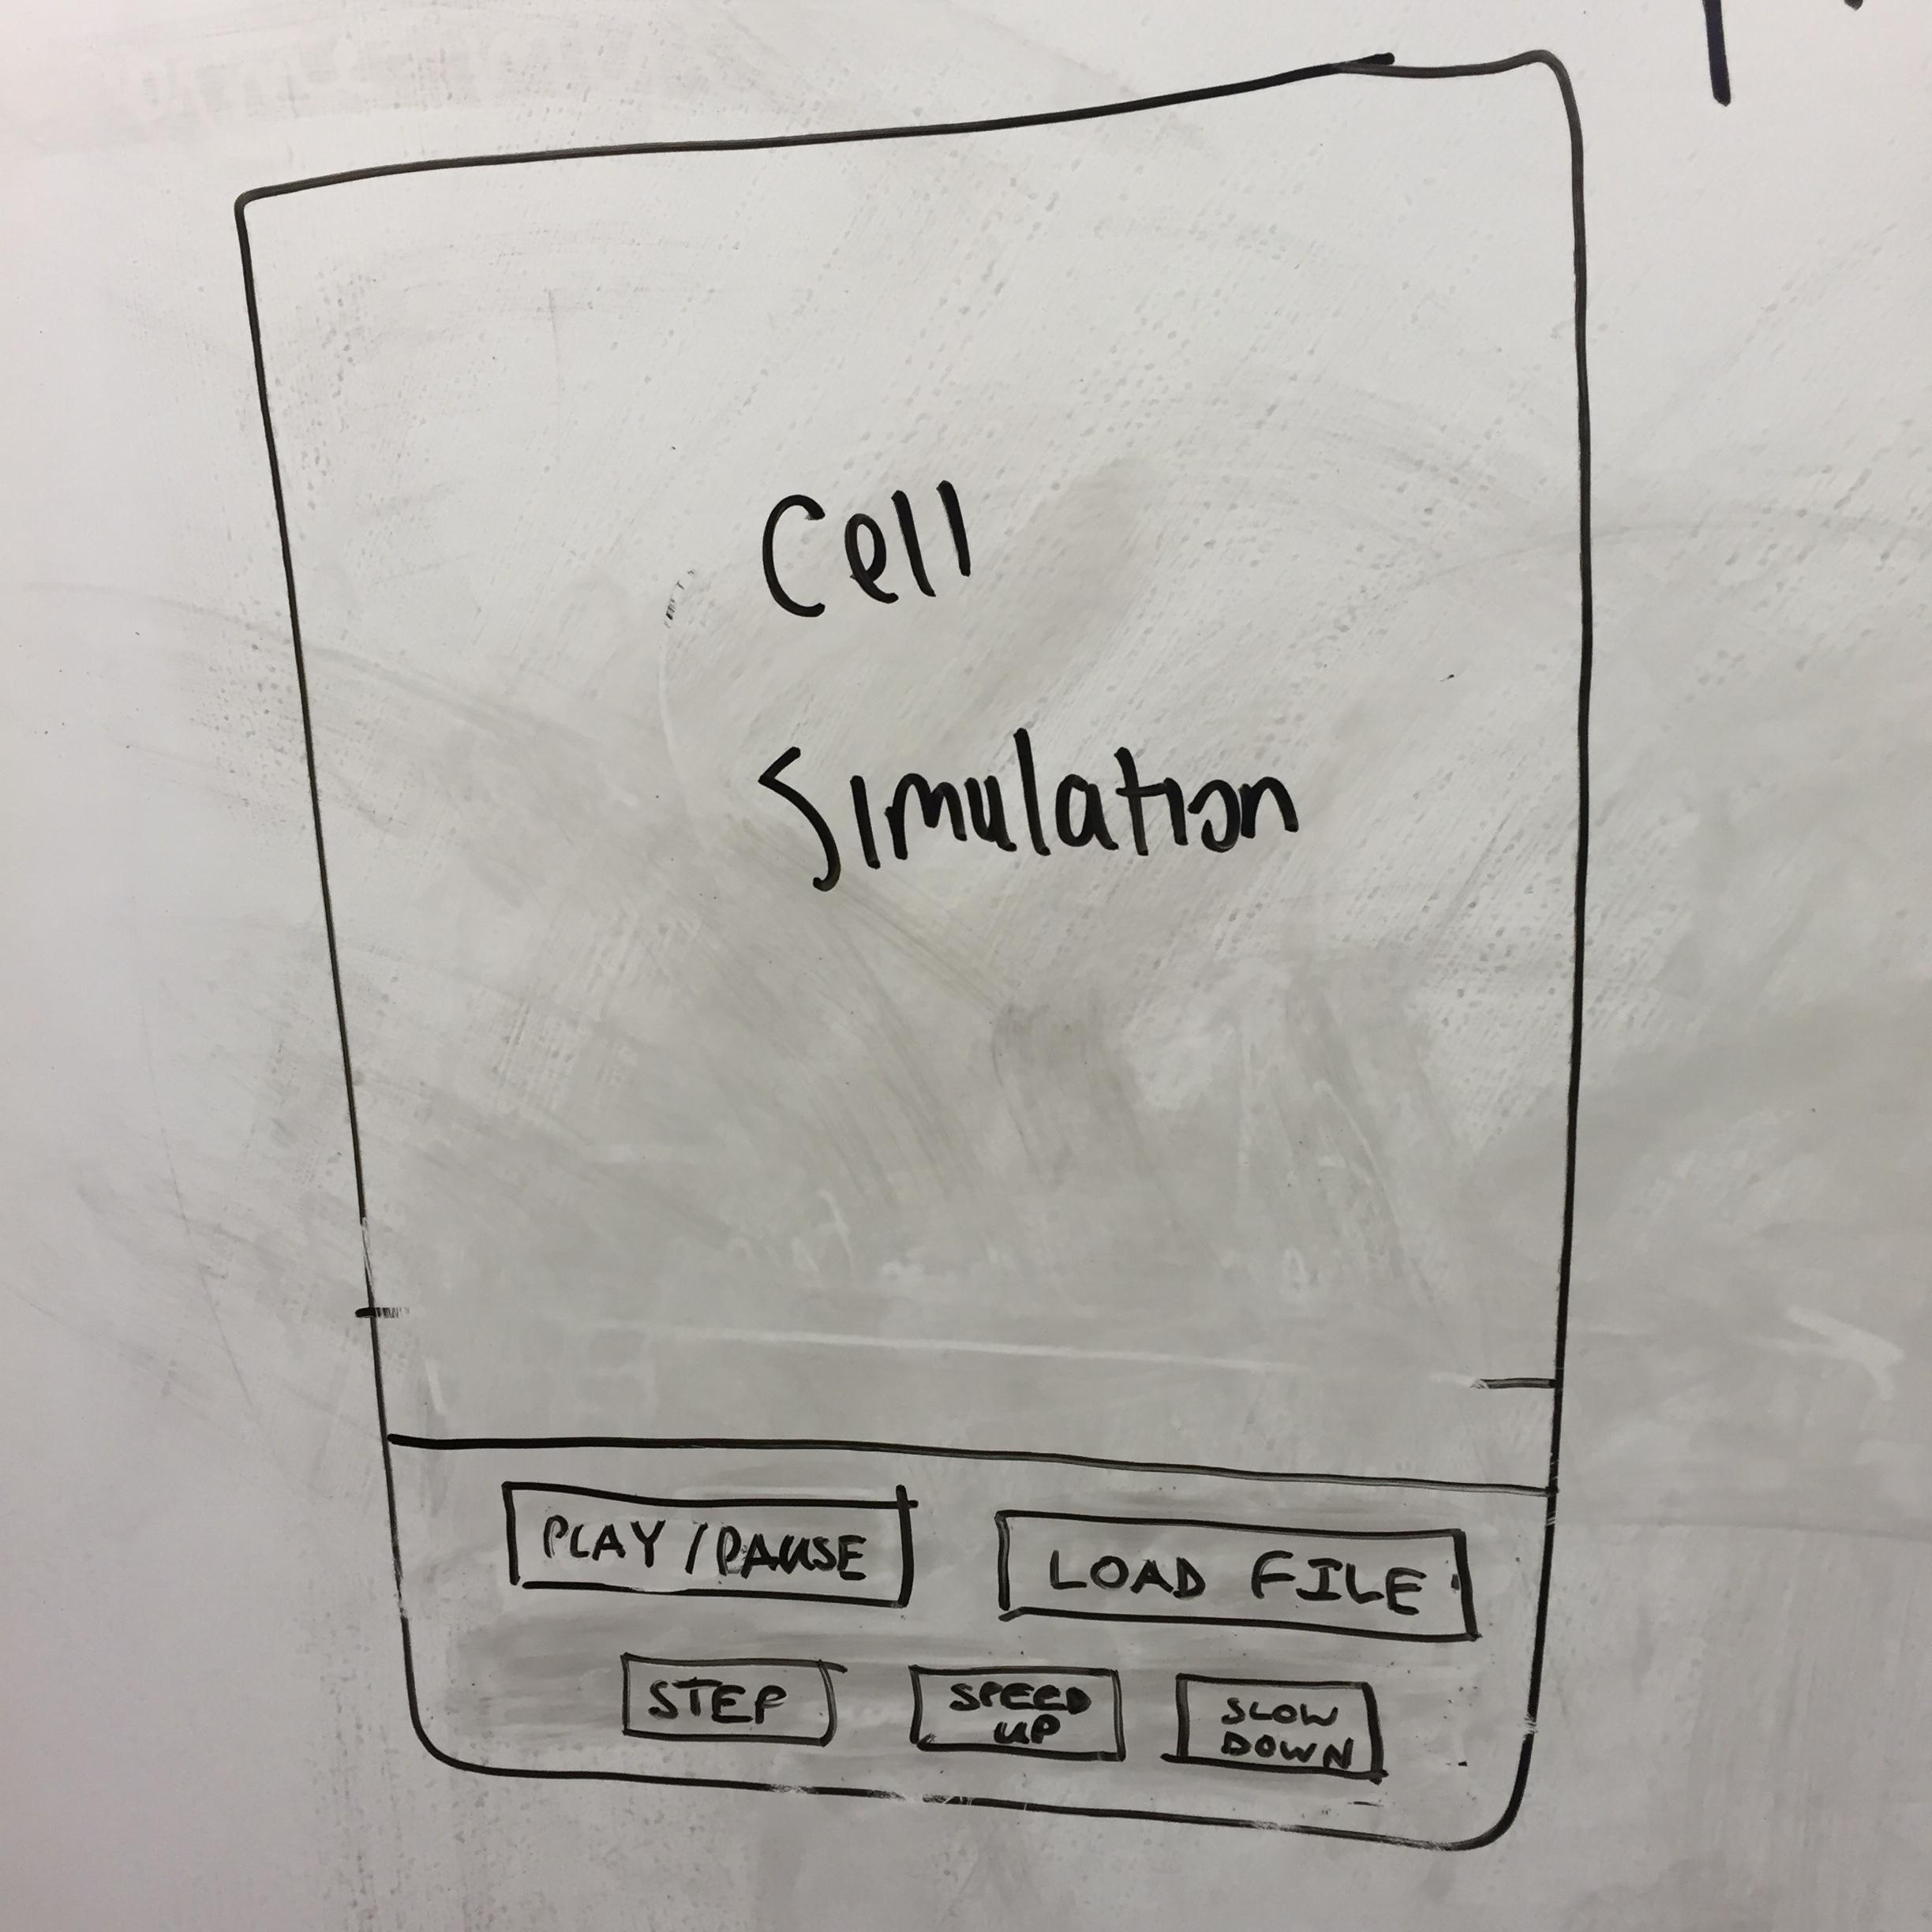 Cell
Simulation
PLAY / PAUSE
LOAD FILE
STEP
SPEED
UP
SLOW
DOWN